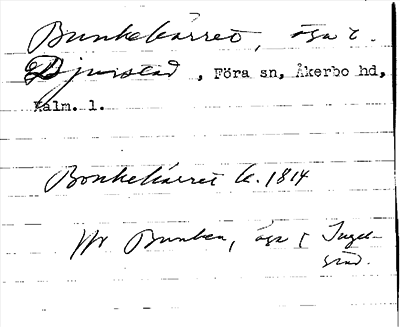 Bunkekärret, äga i
Djurstad, Föra sn, Åkerbo hd,
Kalm. l.
Bonkekärret k. 1814
Bunken, äga i Ingel-
stad.